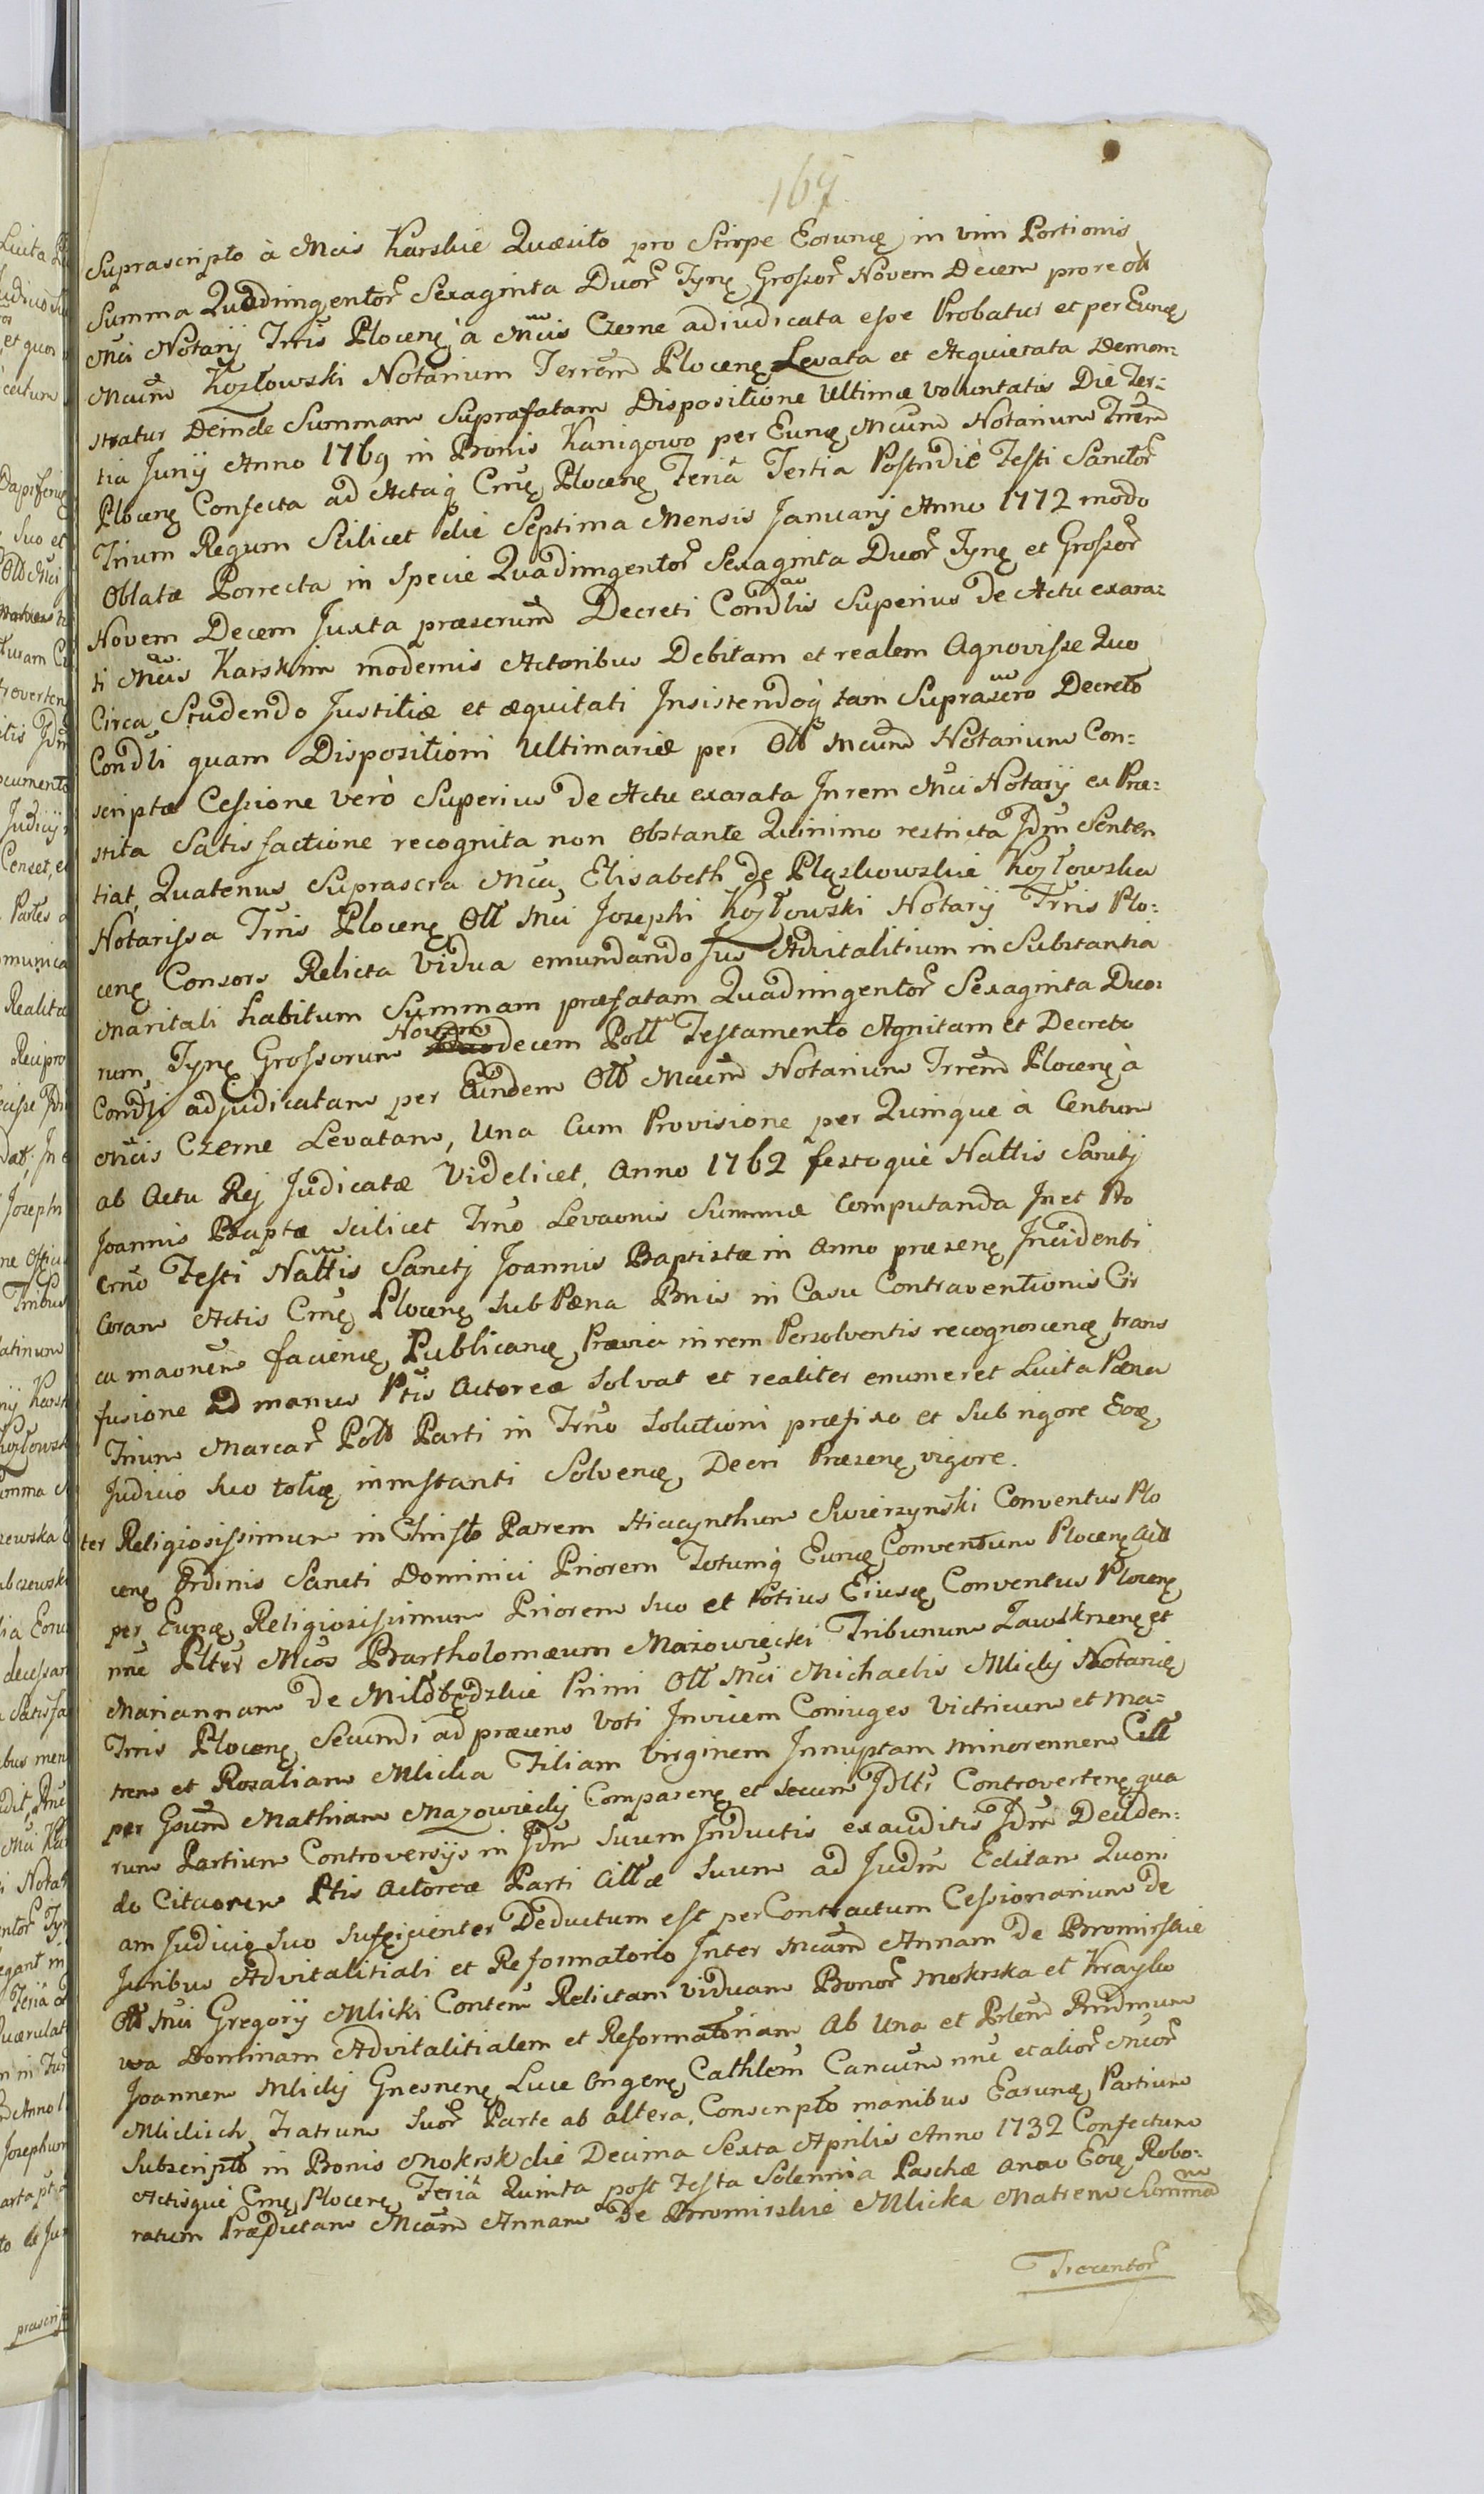 169
Suprascripto à Mcis Karskie Quæsito pro Stirpe Eorundę in vim Portionis
Summa Quadringentor Sexaginta Duor Tynę Grossor Novem Decem pro re olt
Mci Notarij Trris Plocenę à Mcis Czerne adiudicata esse Probatur et per Eundę
Mcum Kozłowski Notarium Terrem Plocenę Levata et Acquietata Demon:
stratur Deinde Summam Suprafatam Dispositione Ultimæ Voluntatis Die Ter:
tia Junij Anno 1769 in Bonis Kanigowo per Eundę Mcum Notarium Trrem
Plocenę Confecta ad Actaq Crnę Plocenę Feriâ Tertia Postridiè Festi Sanctor
Trium Regum Scilicet die Septima Mensis Januarij Anno 1772 modo
Oblatæ Porrecta in Specie Quadringentor Sexaginta Duor Tynę et Grossor
Novem Decem Juxta præscrium Decreti Condlis Superius de Actu exara:
ti Mcis Karskim modernis Actoribus Debitam et realem Agnovisse Quo
Circa Studendo Justitiæ et æquitati Insistendoq tam Suprascro Decreto
Condli quam Dispositioni Ultimariæ per Olt Mcum Notarium Con:
scriptæ Cessione verò Superius de Actu exarata In rem Mci Notarij ex Præ:
stita Satisfactione recognita non Obstante Quinimo restricta Jdm Senten
tiat, Quatenus Suprascra Mca Elisabeth de Pląskowskie Kozłowska
Notarissa Trris Plocenę Olt Mci Josephi Kozłowski Notarij Trris Plo:
cenę Consors Relicta Vidua emundando Jus Advitalitium in Substantia
Maritali habitum Summam præfatam Quadringentor Sexaginta Duo:
rum Tynę Grossorum Novemdecem Poltt Testamento Agnitam et Decreto
Condli adjudicatam per Eundem Olt Mcum Notarium Trrem Plocenę à
Mcis Czerne Levatam, Una Cum Provisione per Quinque à Centum
ab Actu Rej Judicatæ Videlicet, Anno 1762 festoquè Nattis Sancti
Joannis Baptæ scilicet Trno Levaonis Summæ Computanda In et Po
Crno Festi Nattis Sancti Joannis Baptistæ in Anno præsenę Incidenti
Coram Actis Crnę Plocenę Sub Pæna Bnis in Casu Contraventionis Cir
ca maonem faciendę Publicandę Prævia in rem Persolventis recognoscendę trans
fusione Ad manus Ptis Actoreæ Solvat et realiter enumeret Luita Pæna
Trium Marcar Poltt Parti in Trno Solutioni præfixo et Sub rigore Eodę
Judicio Suo toties in instanti Solvendę Decri Præsenę vigore.
ter Religiosissimum in Christo Patrem Hiacynthum Swierzynski Conventus Plo
cenę Ordinis Sancti Dominici Priorem Totumq Eundę Conventum Plocenę Actt
per Eundę Religiosissimum Priorem Suo et Potius Eiusdę Conventus Plocenę
nne Pltes Mcos Bartholomæum Mazowiecki Tribunum Zawskrzenę et
Mariannam de Milobędzkie Primi Olt Mci Michaelis Mlicki Notarię
Trris Plocenę Secundi ad præsens Voti Invicem Coniuges Victricum et Ma:
trem et Rosaliam Mlicka Filiam Virginem Innuptam minorennem Citt
per Gsum Mathiam Mazowiecki Comparenę et Secum Jdltr Controvertenę qua
rum Partium Controversijs in Jdm Suum Inductis exauditis Jdm Deciden:
do Citaorem Ptis Actoreæ Parti Cittæ Suum ad Judm Editam Quoni
am Judicio Suo Sufficienter Deductum est per Contractum Cessionarium de
Juribus Advitalitiali et Reformatorio Inter Mcam Annam de Bromirskie
Olt Mci Gregorij Mlicki Contem Relictam Viduam Bonor Mokrska et Kraykowa
Dominam Advitalitialem et Reformatoriam Ab Una et Prlem Pnndmum
Joannem Mlicki Gnesnenę Luce Origenę Cathlem Cancum nne et alior Mcor
Mlickich Fratrum Suor Parte ab altera, Conscripto manibus Earundę Partium
Subscripto in Bonis Mokrsk die Decima Sexta Aprilis Anno 1732 Confectum
Actisquè Crnę Plocenę Feriâ Quinta post Festa Solennia Paschæ Anno Eodę Robo:
ratum Prædictam Mcam Annam de Bromirskie Mlicka Matrem Summa
Trecentor